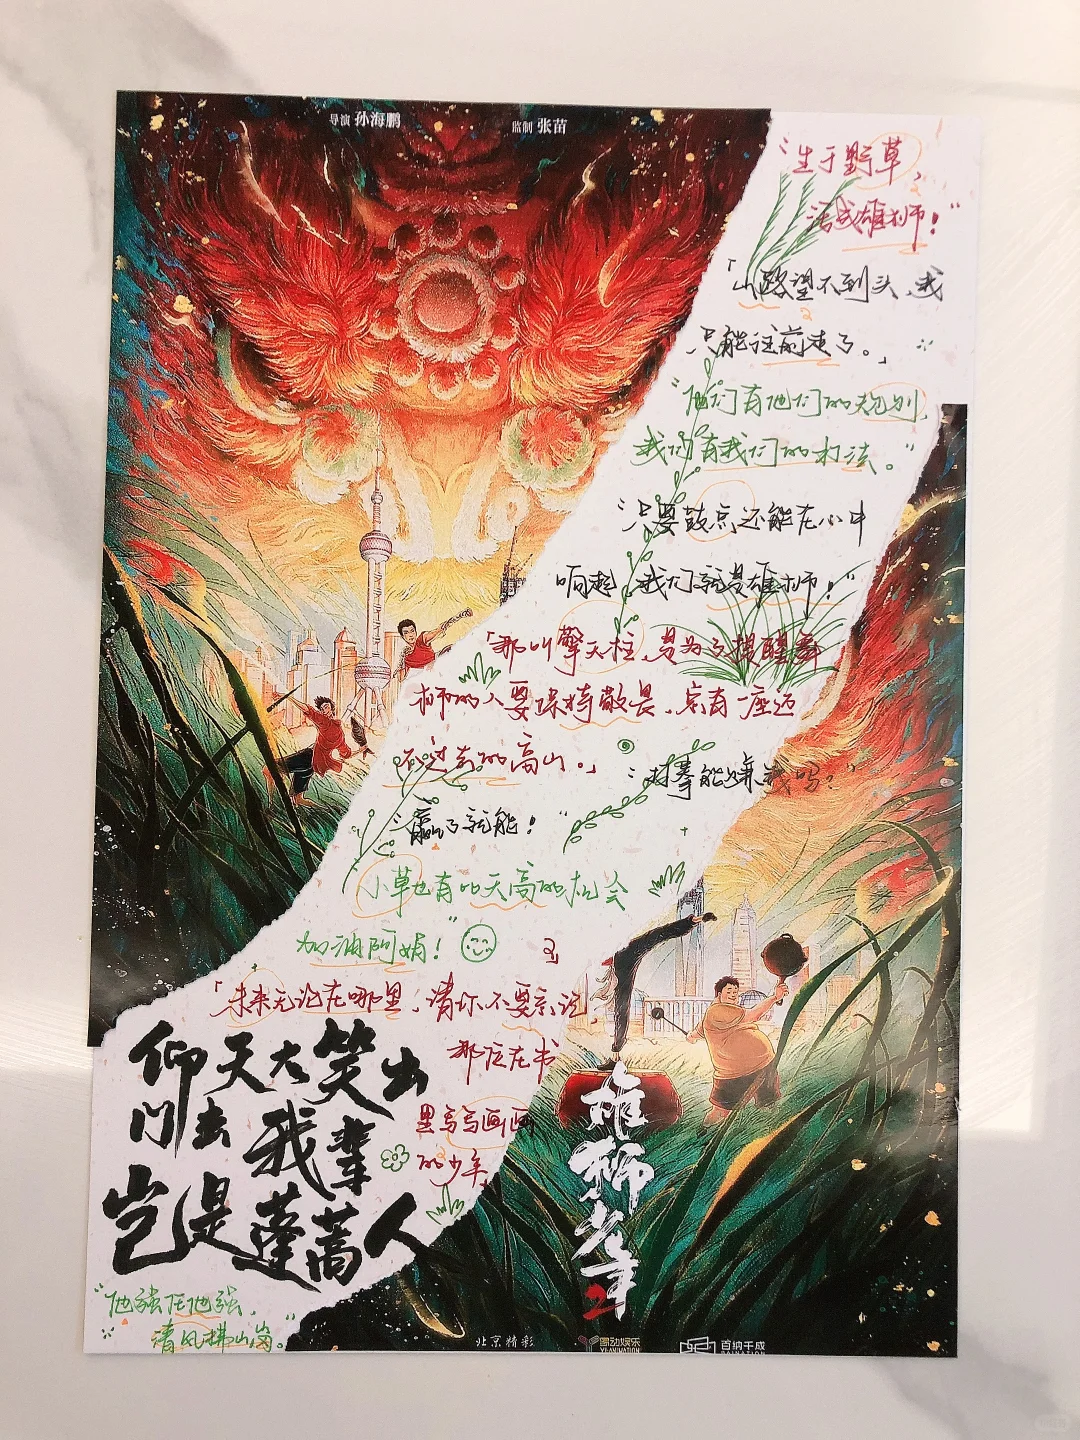 导演 孙海鹏 监制 张苗
“生于野草,
活成雄狮!”
「山路望不到头,我
只能往前走了。」
“他们有他们的规则,
我们有我们的打法。”
“只要鼓点还能在心中
响起,我们就是雄狮!”
「那叫擎天柱,是为了提醒舞
狮的人要保持敬畏,总有一座迈
不过去的高山。」
“打拳能赚钱吗?”
“赢了就能!”
小草也有叻天高的机会
加油阿娟!”
「未来无论在哪里,请你不要忘记,
那位在书
里写写画画
的少年」
仰天大笑出
门去 我辈
岂是蓬蒿人
“他强任他强,
清风拂山岗。”
雄狮少年2
北京精彩
粤动娱乐
YEANIMATION
百纳千成
BAINATION